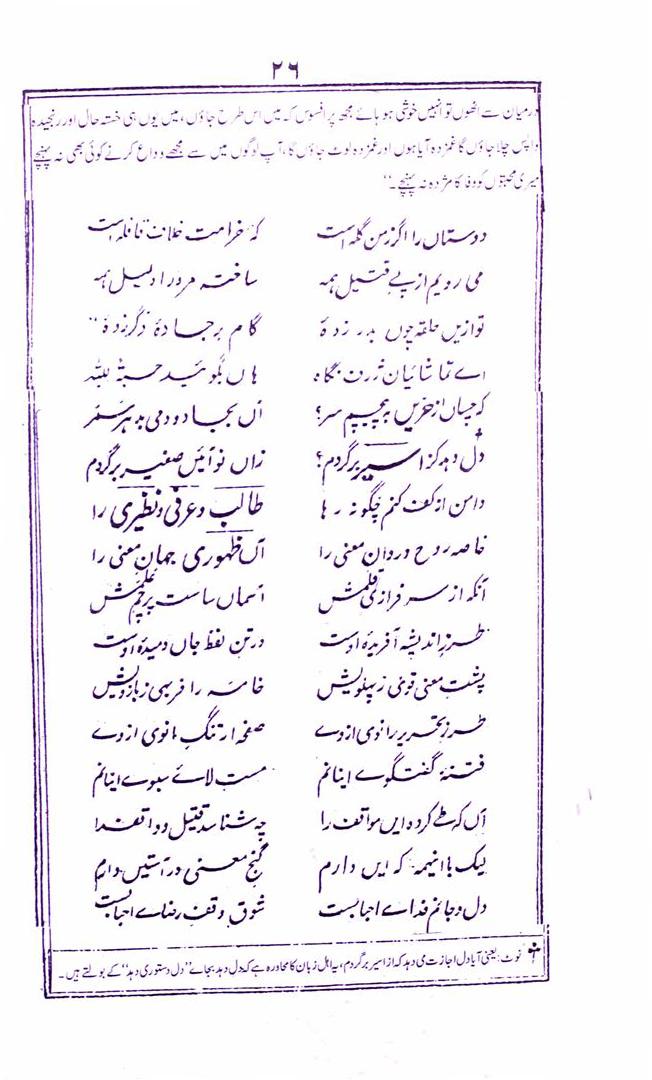 ۲۶
درمیان سے اٹھوں تو انہیں خوشی ہو ہائے مجھ پر افسوس کہ میں اس طرح جاؤں، میں یوں ہی خستہ حال اور رنجیدہ
واپس چلا جاؤں گا غمزدہ آیا ہوں اور غمزدہ لوٹ جاؤں گا، آپ لوگوں میں سے مجھے وداع کرنے کوئی بھی نہ پہنچے
میری محبتوں کو وفا کا مژدہ نہ پہنچے۔"
دوستاں را اگر ز من گلہ است کہ خرامت خلاف قافلہ است
می رویم از پے قتیل ہمہ ساختہ مر ورا دلیل ہمہ
تو ازیں حلقہ چوں بدر زدۂ گام بر جادۂ دگر زدۂ"
اے تماشائیان ژرف نگاہ ہاں بگوئید حسبۃً للہ
کہ چساں از حزیں بہ پیچم سر؟ آں بجادو دمی بدہر سمر
دل دہد کز اسیر برگردم؟ زاں نو آئیں صفیر برگردم
دامن از کف کنم چگونہ رہا طالب و عرفی و نظیری را
خاصہ روح و روان معنی را آں ظہوری جہان معنی را
آنکہ از سرفرازی قلمش آسماں ساست پرچم علمش
طرز اندیشہ آفریدۂ اوست در تن لفظ جاں دمیدۂ اوست
پشت معنی قوی ز پہلویش خامہ را فربہی ز بازویش
طرز تحریر را نوی ازوے صفحہ ارتنگ مانوی ازوے
فتنۂ گفتگوے اینانم مست لاے سبوے اینانم
آں کہ طے کردہ ایں مواقف را چہ شناسد قتیل و واقف را
لیک با اینہمہ کہ ایں دارم گنج معنی در آستیں دارم
دل و جانم فداے احباب ست شوق وقف رضاے احباب ست
نوٹ: یعنی آیا دل اجازت می دہد کہ از اسیر برگردم، یہ اہل زبان کا محاورہ ہے کہ دل دہد بجائے "دل دستوری دہد" کے بولتے ہیں۔